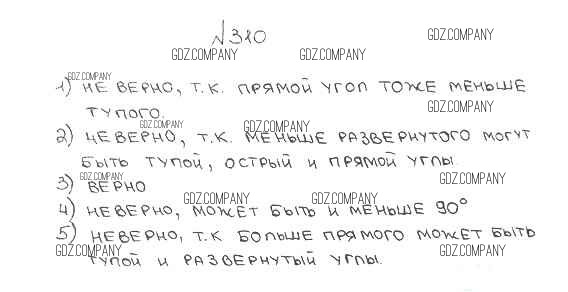 №310
GDZ.COMPANY
GDZ.COMPANY GDZ.COMPANY
GDZ.COMPANY
1) НЕ ВЕРНО, Т.К. ПРЯМОЙ УГОЛ ТОЖЕ МЕНЬШЕ
GDZ.COMPANY
ТУПОГО.
GDZ.COMPANY GDZ.COMPANY
2) НЕВЕРНО, Т.К. МЕНЬШЕ РАЗВЕРНУТОГО МОГУТ
БЫТЬ ТУПОЙ, ОСТРЫЙ И ПРЯМОЙ УГЛЫ
GDZ.COMPANY GDZ.COMPANY
3) ВЕРНО
GDZ.COMPANY GDZ.COMPANY
4) НЕВЕРНО, МОЖЕТ БЫТЬ И МЕНЬШЕ 90°
5) НЕВЕРНО, Т.К БОЛЬШЕ ПРЯМОГО МОЖЕТ БЫТЬ
GDZ.COMPANY GDZ.COMPANY
ТУПОЙ И РАЗВЕРНУТЫЙ УГЛЫ.